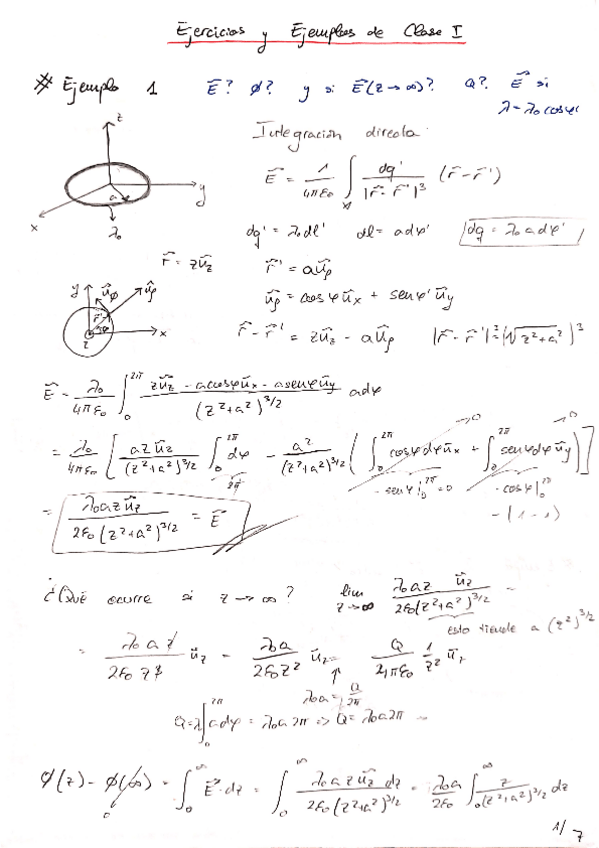 Ejercicios y Ejemplos de Clase I
# Ejemplo 1 E⃗? φ? y si E⃗(z→∞)? Q? E⃗ si
λ=λ₀cosφ
z
Integración directa:
a
y
x
λ₀
E⃗ = 1/4πε₀ ∫ dq'/|r⃗-r⃗'|³ (r⃗-r⃗')
dq' = λ₀dl' dl = adφ' dq = λ₀adφ'
r⃗ = zu⃗z r⃗' = au⃗ρ
u⃗ρ = cosφ u⃗x + senφ' u⃗y
y u⃗φ u⃗ρ
r⃗'
x
z
r⃗-r⃗' = zu⃗z - au⃗ρ |r⃗-r⃗'|³=(√z²+a²)³
E⃗ = λ₀/4πε₀ ∫₀^2π zu⃗z - acosφu⃗x - asenφu⃗y/(z²+a²)^3/2 adφ
= λ₀/4πε₀ [ azu⃗z/(z²+a²)^3/2 ∫₀^2π dφ - a²/(z²+a²)^3/2 ( ∫₀^2π cosφdφu⃗x + ∫₀^2π senφdφu⃗y ) ]
→0 →0
2π -senφ|₀^2π=0 -cosφ|₀^2π
-(1-1)
= λ₀azu⃗z/2ε₀(z²+a²)^3/2 = E⃗
¿Qué ocurre si z→∞? lim z→∞ λ₀az u⃗z/2ε₀(z²+a²)^3/2 =
esto tiende a (z²)^3/2
= λ₀a z/2ε₀ z³ u⃗z = λ₀a/2ε₀z² u⃗z = Q/4πε₀ 1/z² u⃗z
↑
λ₀a = Q/2π
Q=λ∫₀^2π adφ = λ₀a2π => Q=λ₀a2π
φ(z) - φ(∞) = ∫₀^∞ E⃗·dz = ∫₀^∞ λ₀azu⃗z dz/2ε₀(z²+a²)^3/2 = λ₀a/2ε₀ ∫₀^∞ z/(z²+a²)^3/2 dz
0
1/7